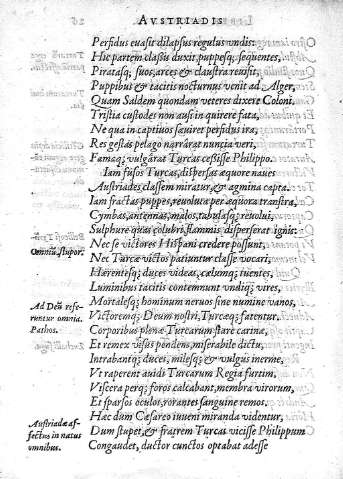 AVSTRIADIS
Perfidus euasit dilapsus regulus vndis:
Hic partem classis duxit, puppesq; sequentes,
Piratasq; suos, arces & claustra reuisit,
Puppibus & tacitis nocturnus venit ad Alger,
Quam Saldem quondam veteres dixere Coloni,
Tristia custodes non ausi in quirere fata,
Ne qua in captiuos sæuiret perfidus ira,
Res gestas pelago narrârat nuncia veri,
Famaq; vulgârat Turcas cessisse Philippo.
Iam fusos Turcas, dispersas æquore naues
Austriades classem miratur, & agmina capta.
Iam fractas puppes, reuoluí per æquora transtra,
Cymbas, antennas, malos, tabulasq; reuolui,
Sulphure quas colubri, flammis disperserat ignis:
Omniũ stupor.
Nec se victores Hispani credere possunt,
Nec Turcæ victos patiuntur classe vocari,
Hærentesq; duces videas, cælumq; tuentes,
Luminibus tacitis contemnunt vndiq; vires,
Ad Deũ referuntur omnia.
Mortalesq; hominum neruos sine numine vanos,
Victoremq; Deum nostri, Turcæq; fatentur.
Pathos.
Corporibus plenæ Turcarum stare carinæ,
Et remex visus pondens, miserabile dictu,
Intrabantq; duces, milesq; & vulgus inerme,
Vt raperent auidi Turcarum Regia furtim,
Viscera perq; foros calcabant, membra virorum,
Et sparsos oculos, rorantes sanguine remos.
Austriadæ affectus in natus omnibus.
Hæc dum Cæsareo iuueni miranda videntur,
Dum stupet, & fratrem Turcas vicisse Philippum
Congaudet, ductor cunctos optabat adesse